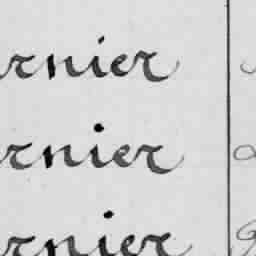 rnier
rnier
rnier